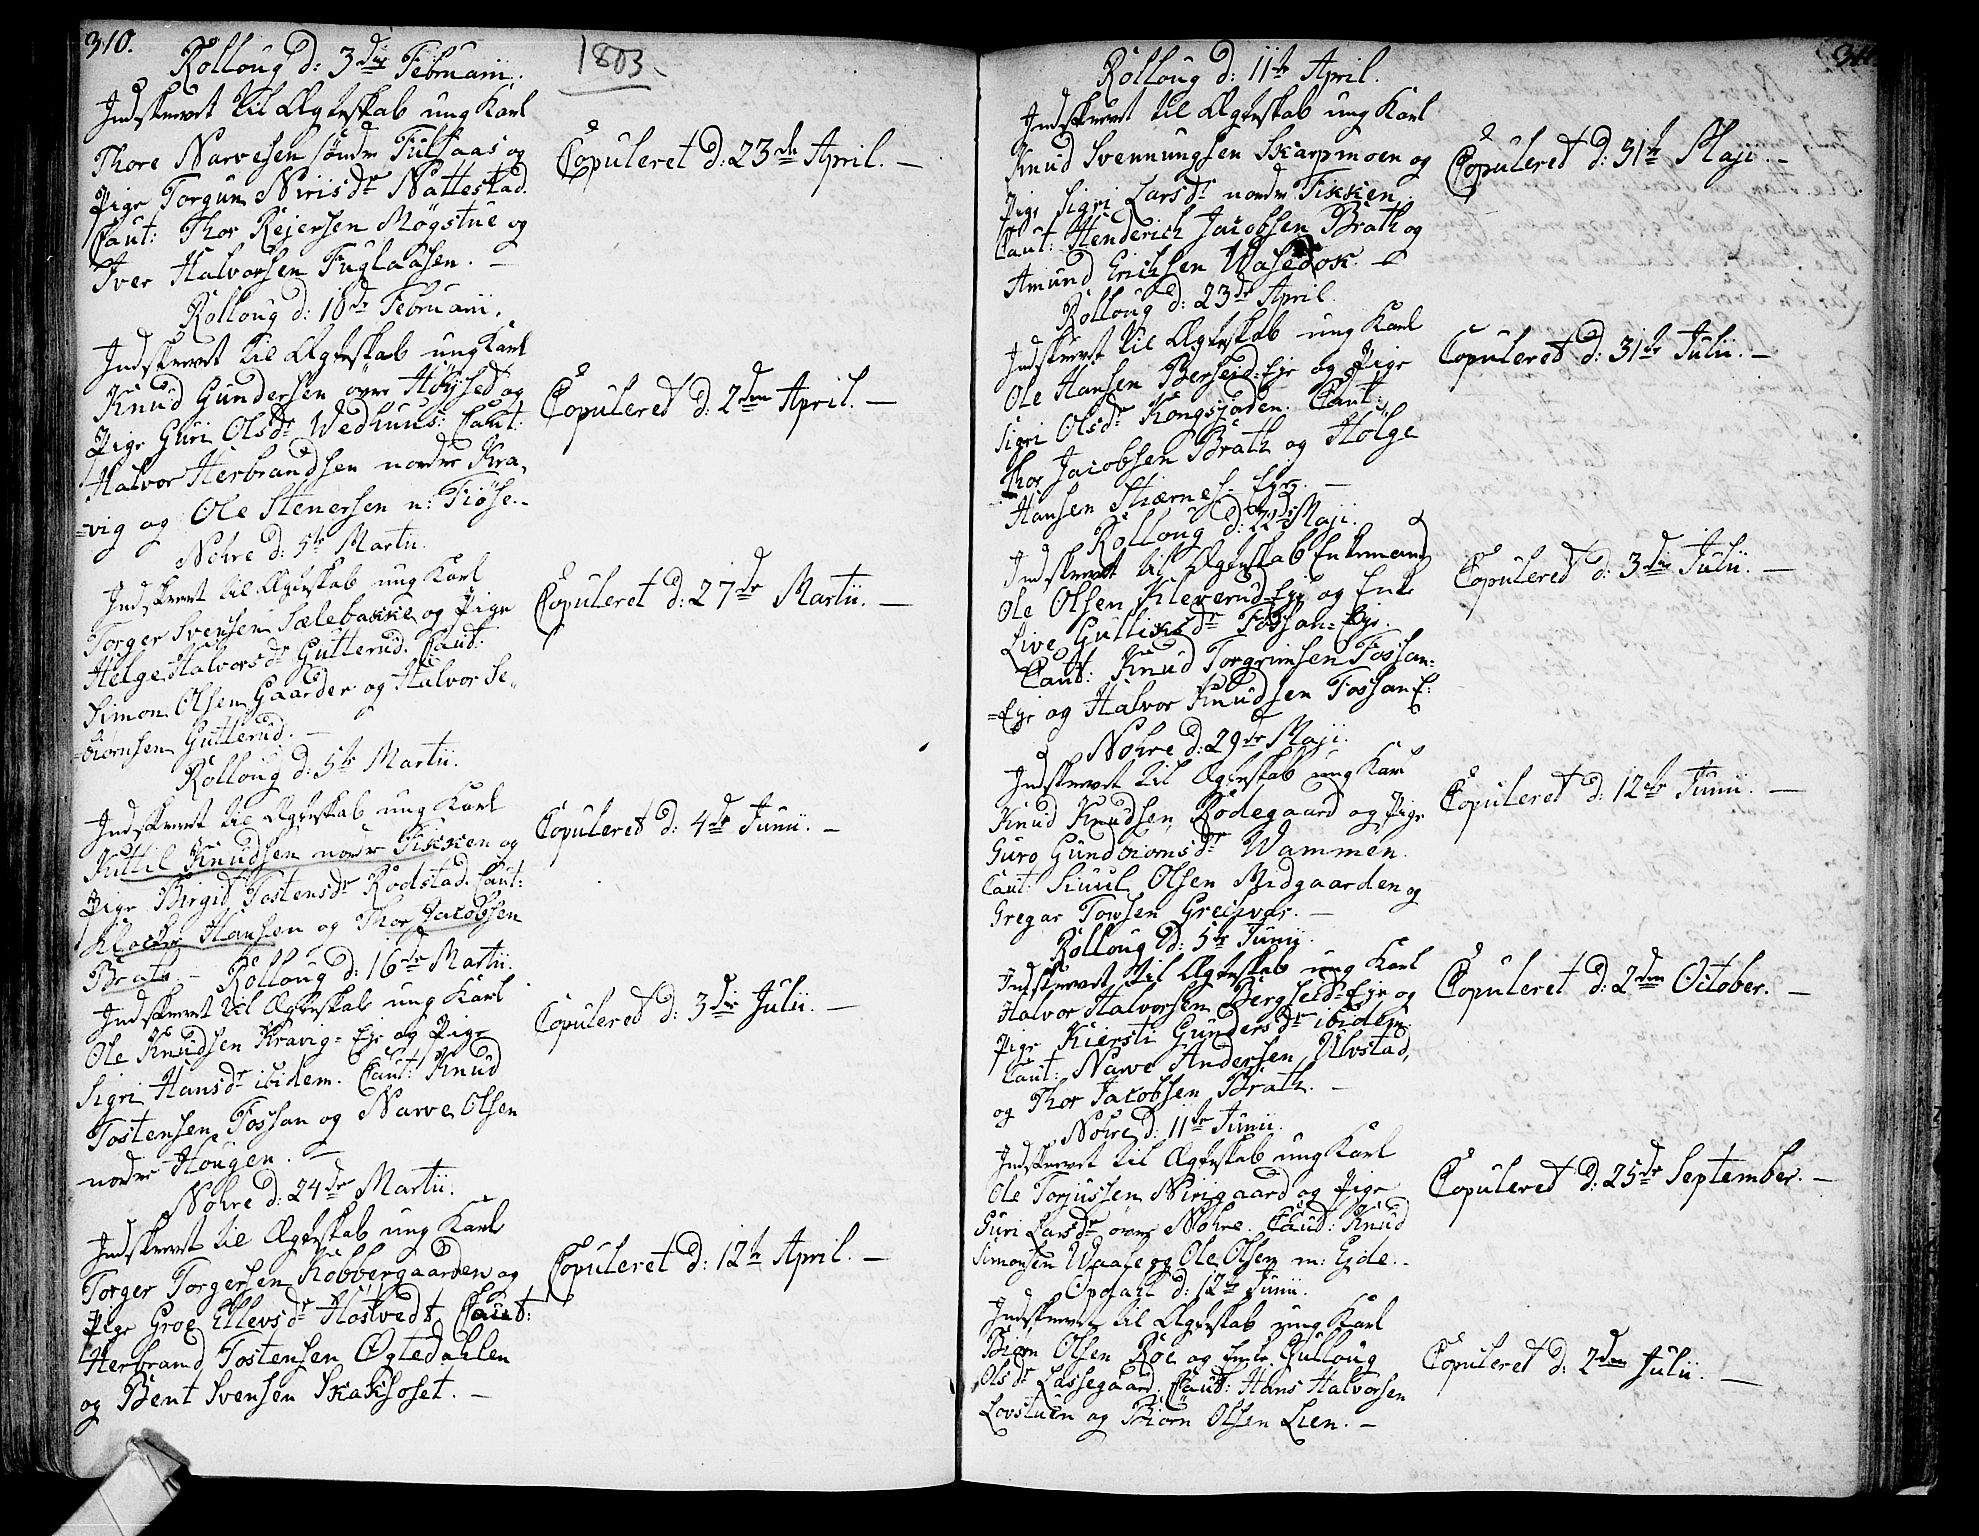 310.
1803.
Rolloug d: 3die Februarii.
Indskrevet til Ægteskab ung Karl
Thore Narvesen söndre Fulsaas og
Pige Torgun Nirisdr Nattestad.
Caut: Thor Rejersen Mögstue og
Iver Halvorsen Fuglaasen. —
Copuleret d: 23de April. —
Rolloug d: 18de Februarii.
Indskrevet til Ægteskab ung Karl
Knud Gundersen övre Höyset og
Pige Guri Olsdr Wedhuus: Caut:
Halvor Herbrandsen nordre Kra,
=vig og Ole Stenersen n: Fiöse. —
Copuleret d: 2den April. —
Nohre d: 5te Martii.
Indskrevet til Ægteskab ung Karl
Torger Svensen Sælebakke og Pige
Helge Halvorsdr Gutterud. Caut:
Simon Olsen Gaarder og Halvor Se,,
=biörnsen Gutterud. —
Copuleret d: 27de Martii. —
Rolloug d: 5te Martii.
Indskrevet til Ægteskab ung Karl
Kittil Knudsen nordre Fikken og
Pige Birgit Tostensdr Rodstad. Caut:
Hansen og Thor Jacobsen
Brath. — Rolloug d: 16de Martii.
Copuleret d: 4de Junii. —
Indskrevet til Ægteskab ung Karl
Ole Knudsen Kravig=Eje og Pige
Sigri Hansdr ibidem. Caut: Knud
Tostensen Fossan og Narve Olsen
nordre Hougen. —
Copuleret d: 3die Julii. —
Nohre d: 24de Martii.
Indskrevet til Ægteskab ung Karl
Torger Torgersen Kobbergaarden og
Pige Groe Ellevsdr Hostvedt Caut:
Herbrand Tostensen Ögtedahlen
og Bent Svensen Skaksoset. —
Copuleret d: 12te April. —
311.
Rolloug d: 11te April.
Indskrevet til Ægteskab ung Karl
Knud Svennungsen Skarpmoen og
Pige Sigri Larsdr nordre Fikken.
Caut: Henderich Jacobsen Brath og
Amund Erichsen —
Copuleret d: 31te Maji. —
Rolloug d: 23de April.
Indskrevet til Ægteskab ung Karl
Ole Hansen Berseid=Eje og Pige
Sigri Olsdr Kongsjorden. Caut:
Thor Jacobsen Brath og Holge
Hansen Stiærnes=Ejer. —
Copuleret d: 31te Julii. —
Rolloug d: 22de Maji.
Indskrevet til Ægteskab Enkemand
Ole Olsen Kleverud=Eje og Enke
Live Gulliksdr Fossan=Eje.
Caut: Knud Torgrimsen Fossan=
=Eje og Halvor Knudsen Fossan E:
Copuleret d: 3die Julii. —
Nohre d: 29de Maji.
Indskrevet til Ægteskab ung Karl
Knud Knudsen Rodegaard og Pige
Guro Gundbiörnsdr Wammen.
Caut: Siuul Olsen Midgaarden og
Gregar Towsen Greisvar. —
Copuleret d: 12te Junii. —
Rolloug d: 5te Junii.
Indskrevet til Ægteskab ung Karl
Halvor Halvorsen Bergseid=Eje og
Pige Kiersti Gundersdr ibidem.
Caut: Narve Andersen Ulvstad,
og Thor Jacobsen Brath. —
Copuleret d: 2den October. —
Nohre d: 11te Junii.
Indskrevet til Ægteskab ung Karl
Ole Torjussen Nirigaard og Pige
Guri Larsdr övre Nohre. Caut: Knud
Simonsen Waale og Ole Olsen m: Ejde. —
Copuleret d: 25de September. —
Opdahl d: 12te Junii.
Indskrevet til Ægteskab ung Karl
Biörn Olsen Röe og Enke Gulloug
Olsdr Lassegaard. Caut: Hans Halvorsen
Lovstuen og Biörn Olsen Lien. —
Copuleret d: 2den Julii. —